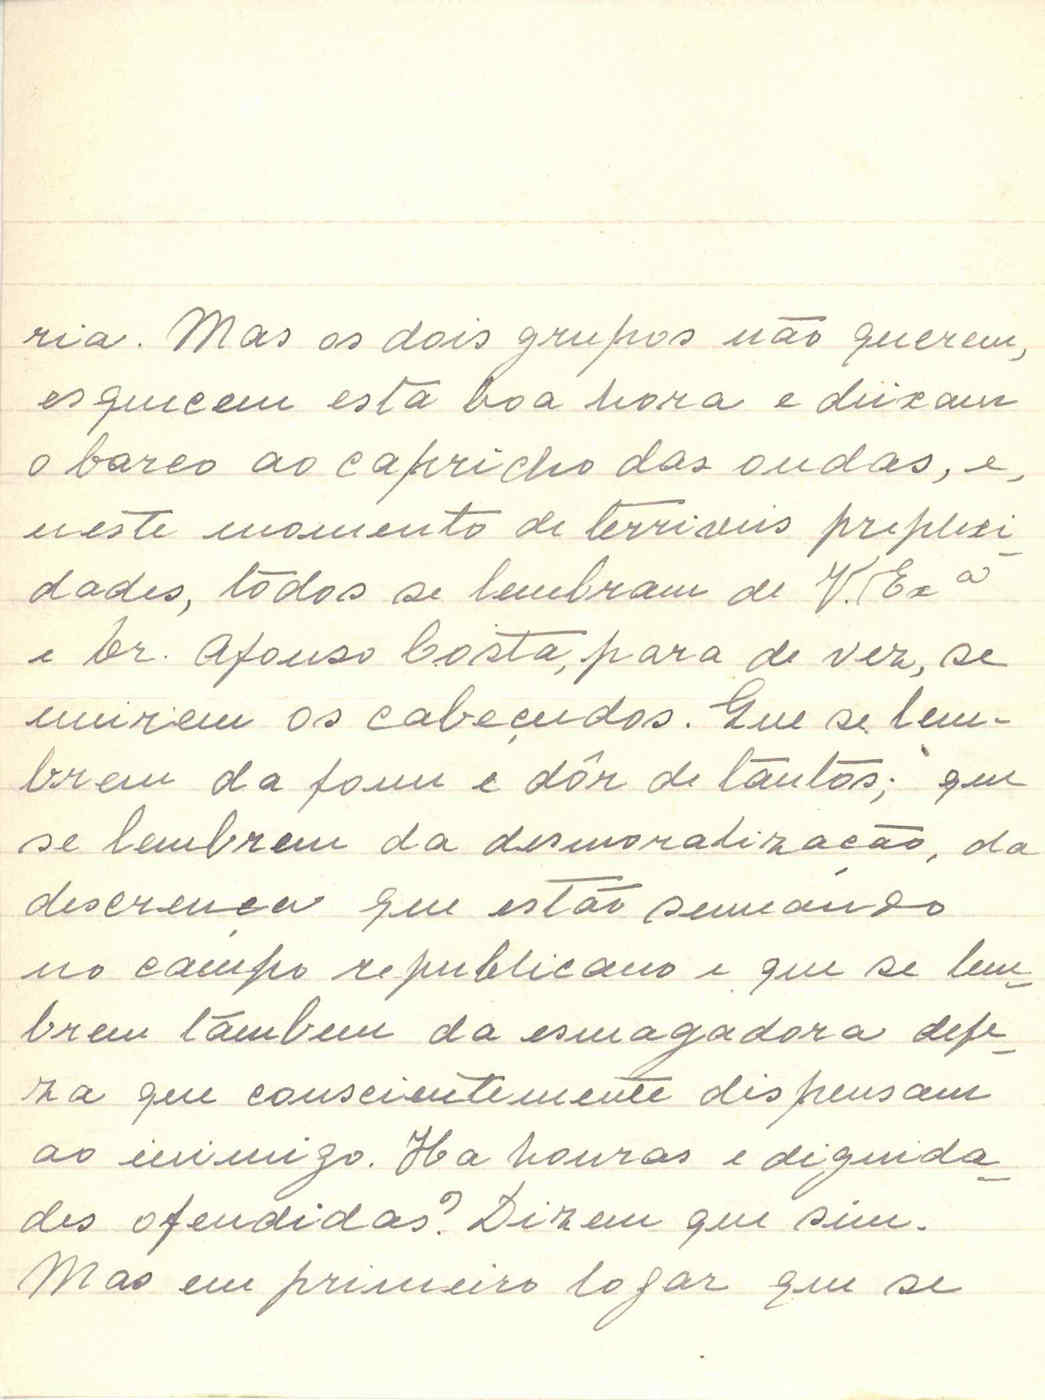 ria. Mas os dois grupos não querem,
esquecem esta boa hora e deixam
o barco ao capricho das ondas, e,
neste momento de terriveis preplexi-
dades, tôdos se lembram de V. Exª
e Dr. Afonso Costa, para de vez, se
unirem os cabeçudos. Que se lem-
brem da fome e dôr de tantos; que
se lembrem da desmoralização, da
descrença que estão semeando
no campo republicano e que se lem-
brem tambem da esmagadora defe-
za que conscientemente dispensam
ao inimigo. Ha honras e dignida-
des ofendidas? Dizem que sim.
Mas em primeiro logar que se